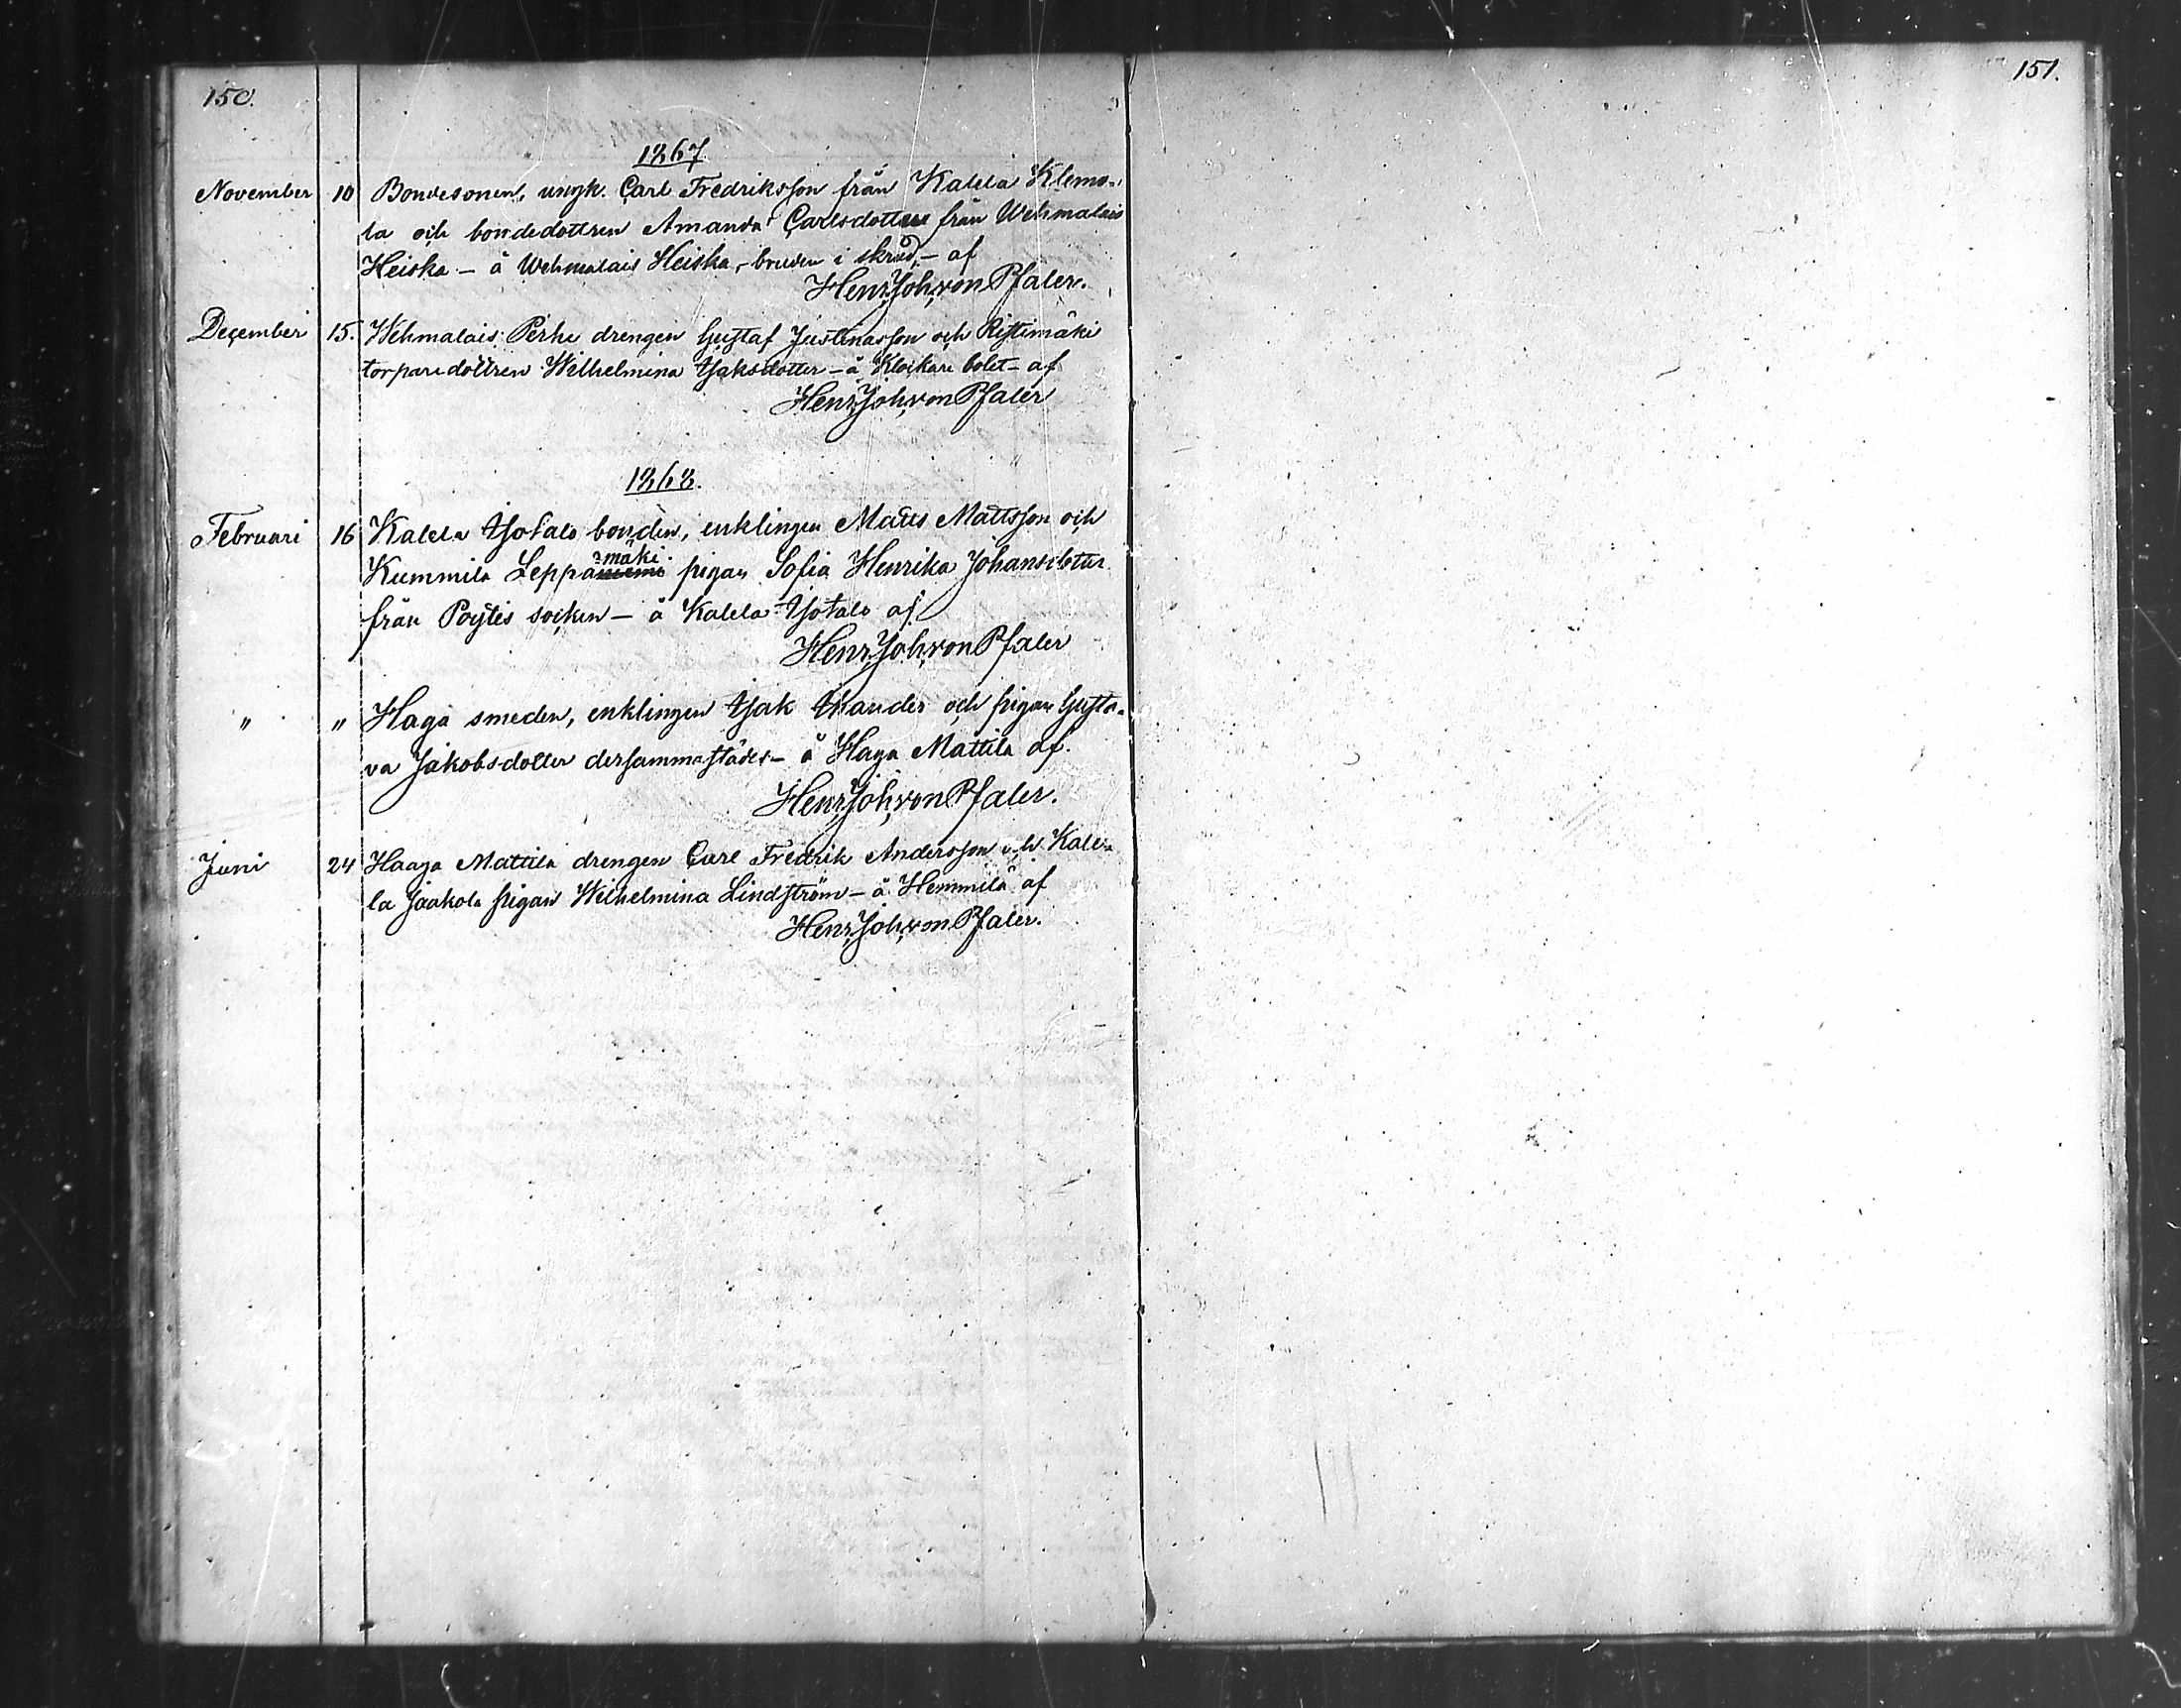 150.
151.
1867.
November 10 Bondesonen, ungk. Carl Fredriksson från Kalela Klemo-
la och bondedottren Amanda Carlsdotter från Wehmalais
Heiska – å Wehmalais Heiska, – bruden i skrud, – af
Henr. Joh. von Pfaler.
December 15. Wehmalais Perhe drengen Gustaf Justinasson och Ristimäki
torparedottren Wilhelmina Isaksdotter – å Klockare bolet – af
Henr. Joh. von Pfaler
1868.
Februari 16 Kalela Isotalo bonden, enklingen Matts Mattsson och
Kummila Leppäniemi -mäki pigan Sofia Henrika Johansdotter
från Pöytis socken – å Kalela Isotalo af
Henr. Joh. von Pfaler
" " Haga smeden, enklingen Isak Thander och pigan Gusta-
va Jakobsdotter dersammastädes – å Haga Mattila af.
Henr. Joh. von Pfaler.
Juni 24 Haaga Mattila drengen Carl Fredrik Andersson och Kale-
la Jaakola pigan Wilhelmina Lindström – å Hemmilä af
Henr. Joh. von Pfaler.